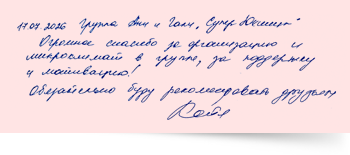 17.07.2026 Группа Ани и Гали, "Супер Женщин"
Огромное спасибо за организацию и
микроклимат в группе, за поддержку
и мотивацию!
Обязательно буду рекомендовать друзьям
Катя